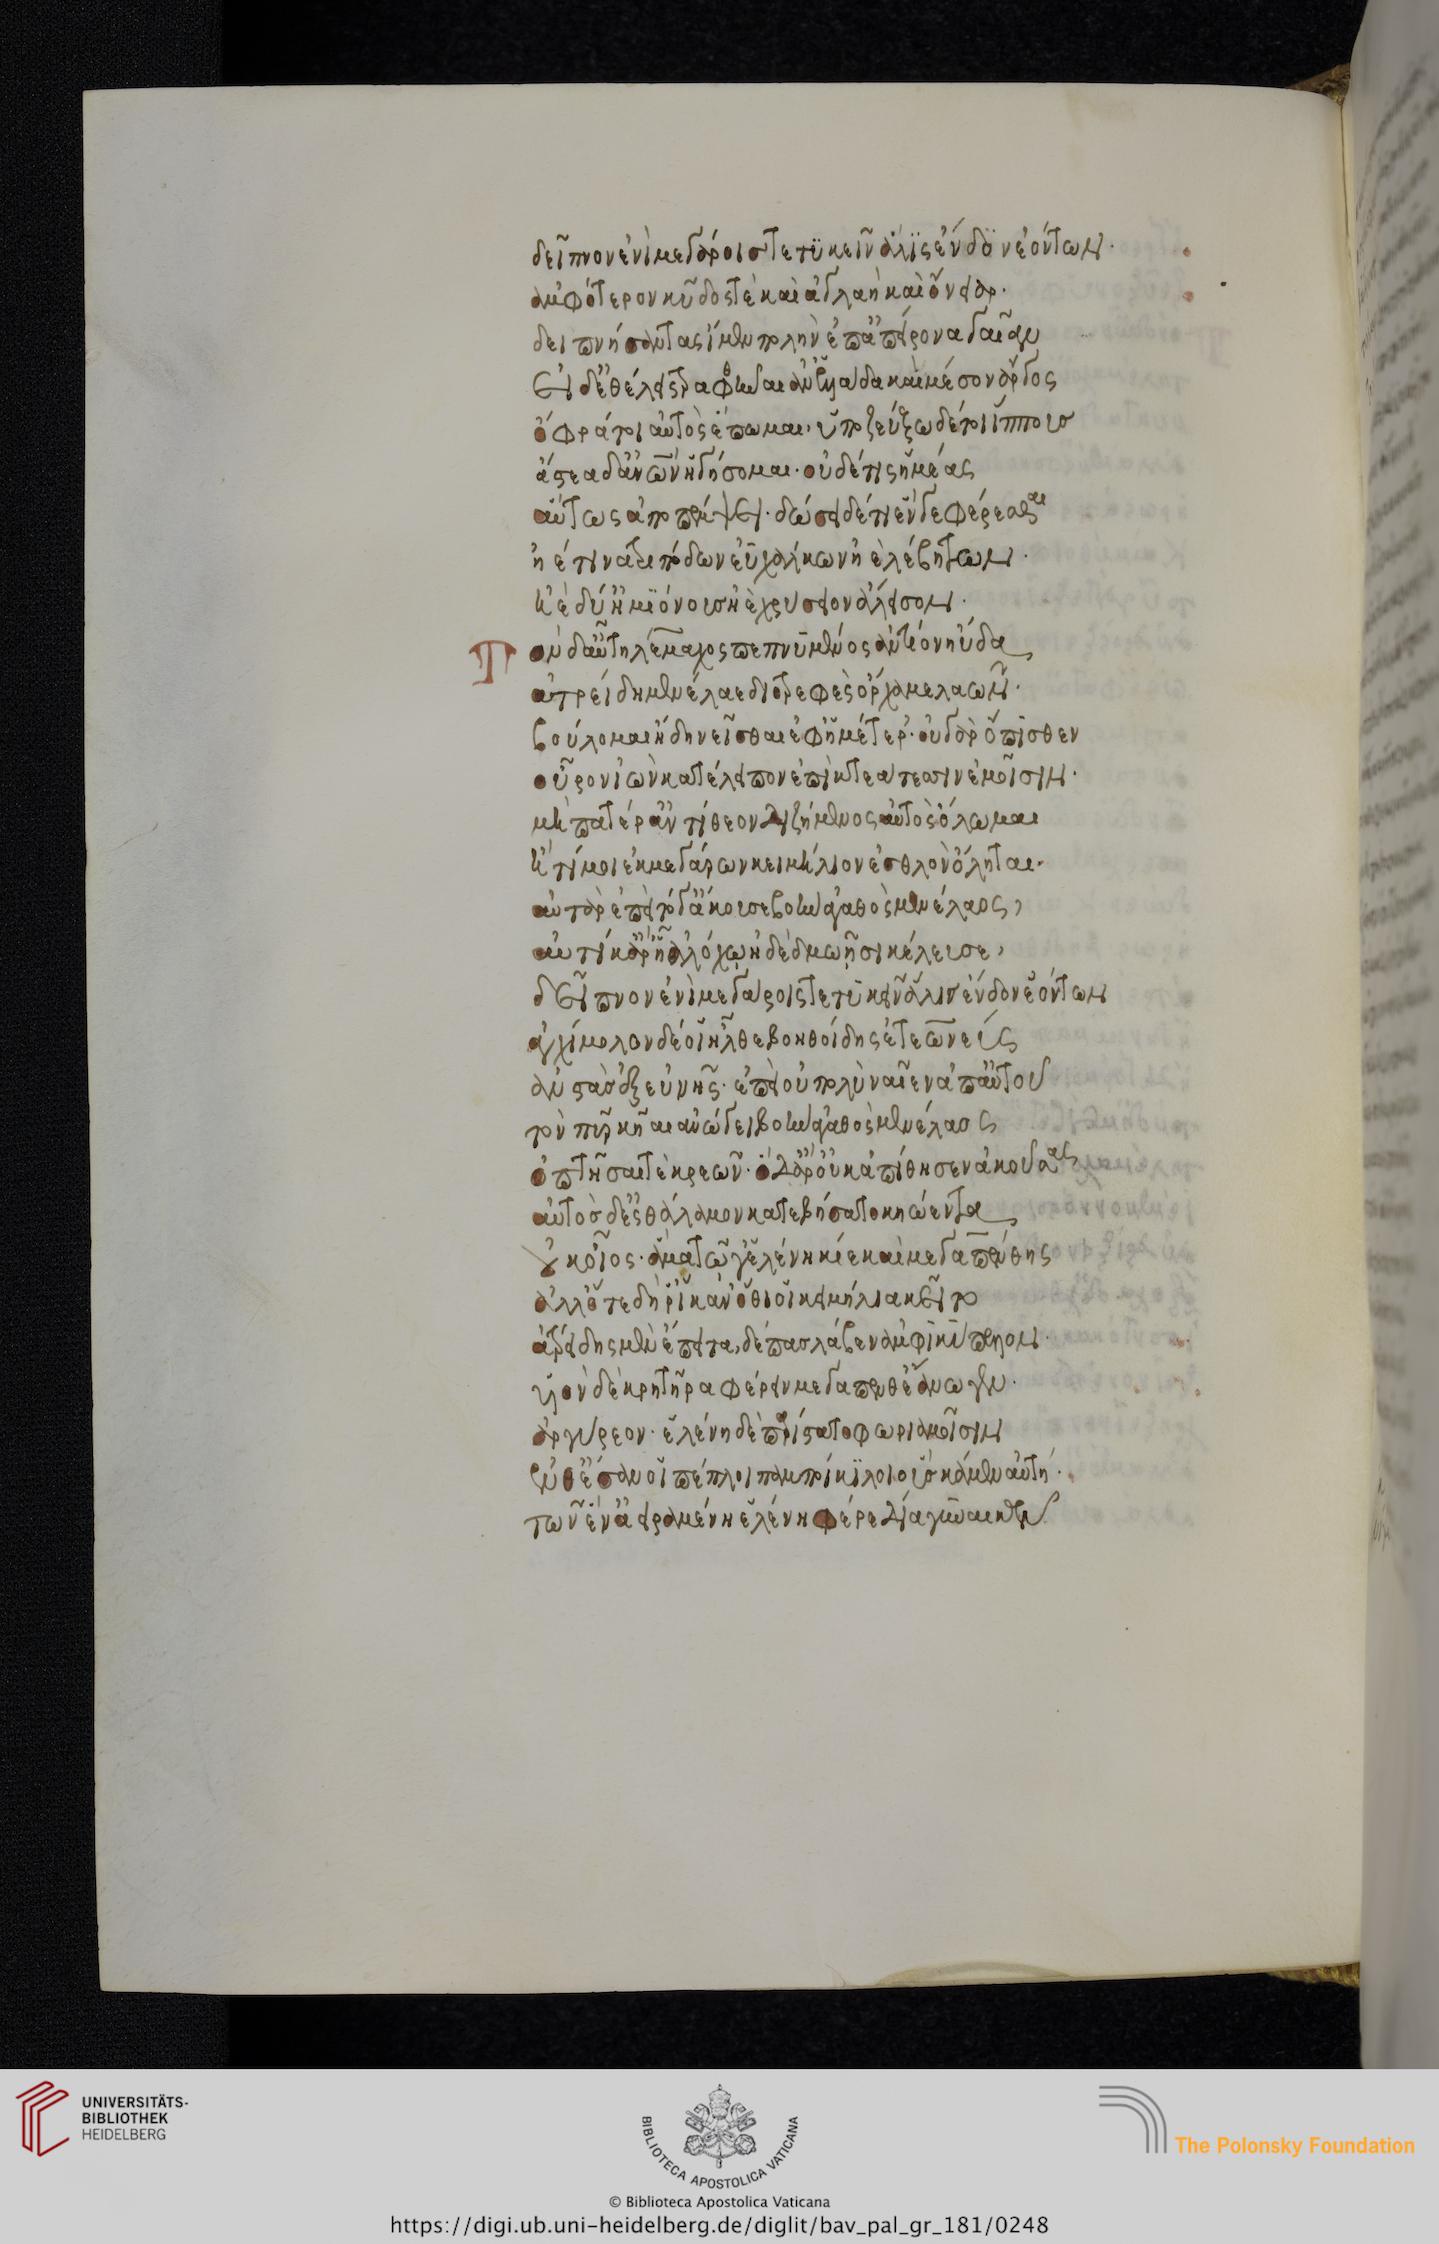 δεῖπνον ἐνὶ μεγάροις τετυκεῖν ἅλις ἔνδον ἐόντων·
ἀμφότερον κῦδός τε καὶ ἀγλαΐη καὶ ὄνειαρ·
δειπνήσαντας ἴμεν πολλὴν ἐπ' ἀπείρονα γαῖαν
εἰ δ' ἐθέλεις τραφθῆναι ἀν' ἑλλάδα καὶ μέσον ἄργος
ὄφρά τοι αὐτὸς ἕπωμαι· ὑποζεύξω δέ τοι ἵππους
ἄστεα δ' ἀνθρώπων ἡγήσομαι· οὐδέ τις ἡμέας
αὔτως ἀποπέμψει· δώσει δέ τι ἕν γε φέρεσθαι
ἠέ τινα τριπόδων εὐχάλκων ἠὲ λεβήτων·
ἠὲ δύ' ἡμιόνους ἠὲ χρύσειον ἄλεισον·
Τὸν δ' αὖ τηλέμαχος πεπνυμένος ἀντίον ηὔδα
ἀτρείδη μενέλαε διοτρεφὲς ὄρχαμε λαῶν·
βούλομαι ἤδη νεῖσθαι ἐφ' ἡμέτερ'· οὐ γὰρ ὄπισθεν
οὖρον ἰὼν κατέλειπον ἐπὶ κτεάτεσσιν ἐμοῖσιν·
μὴ πατέρ' ἀντίθεον διζήμενος αὐτὸς ὄλωμαι
ἤ τί μοι ἐκ μεγάρων κειμήλιον ἐσθλὸν ὄληται·
αὐτὰρ ἐπεὶ τόγ' ἄκουσε βοὴν ἀγαθὸς μενέλαος,
αὐτίκ' ἄρ' ᾗ ἀλόχῳ ἠδὲ δμωῇσι κέλευσε,
δεῖπνον ἐνὶ μεγάροις τετυκεῖν ἅλις ἔνδον ἐόντων
ἀγχίμολον δέ οἱ ἦλθε βοηθοίδης ἐτεωνεύς
ἀνστὰς ἐξ εὐνῆς· ἐπεὶ οὐ πολὺ ναῖεν ἀπ' αὐτοῦ
τὸν πῦρ κῆαι ἀνώγει βοὴν ἀγαθὸς μενέλαος
ὀπτῆσαί τε κρεῶν· ὁ δ' ἄρ' οὐκ ἀπίθησεν ἀκούσας
αὐτὸς δ' ἐς θάλαμον κατεβήσατο κηώεντα
οὐκ οἶος· ἅμα τῷ γ' ἑλένη κίε καὶ μεγαπένθης
ἀλλ' ὅτε δή ῥ' ἵκανον ὅθι οἱ κειμήλια κεῖτο
ἀτρείδης μὲν ἔπειτα, δέπας λάβεν ἀμφικύπελλον·
υἱὸν δὲ κρητῆρα φέρειν μεγαπένθε' ἄνωγεν·
ἀργύρεον· ἑλένη δὲ παρίστατο φωριαμοῖσιν
ἔνθ' ἔσαν οἱ πέπλοι παμποίκιλοι οὓς κάμεν αὐτή·
τῶν ἕν' ἀειραμένη ἑλένη φέρε δῖα γυναικῶν
UNIVERSITÄTS-
BIBLIOTHEK
HEIDELBERG
BIBLIOTECA APOSTOLICA VATICANA
The Polonsky Foundation
© Biblioteca Apostolica Vaticana
https://digi.ub.uni-heidelberg.de/diglit/bav_pal_gr_181/0248